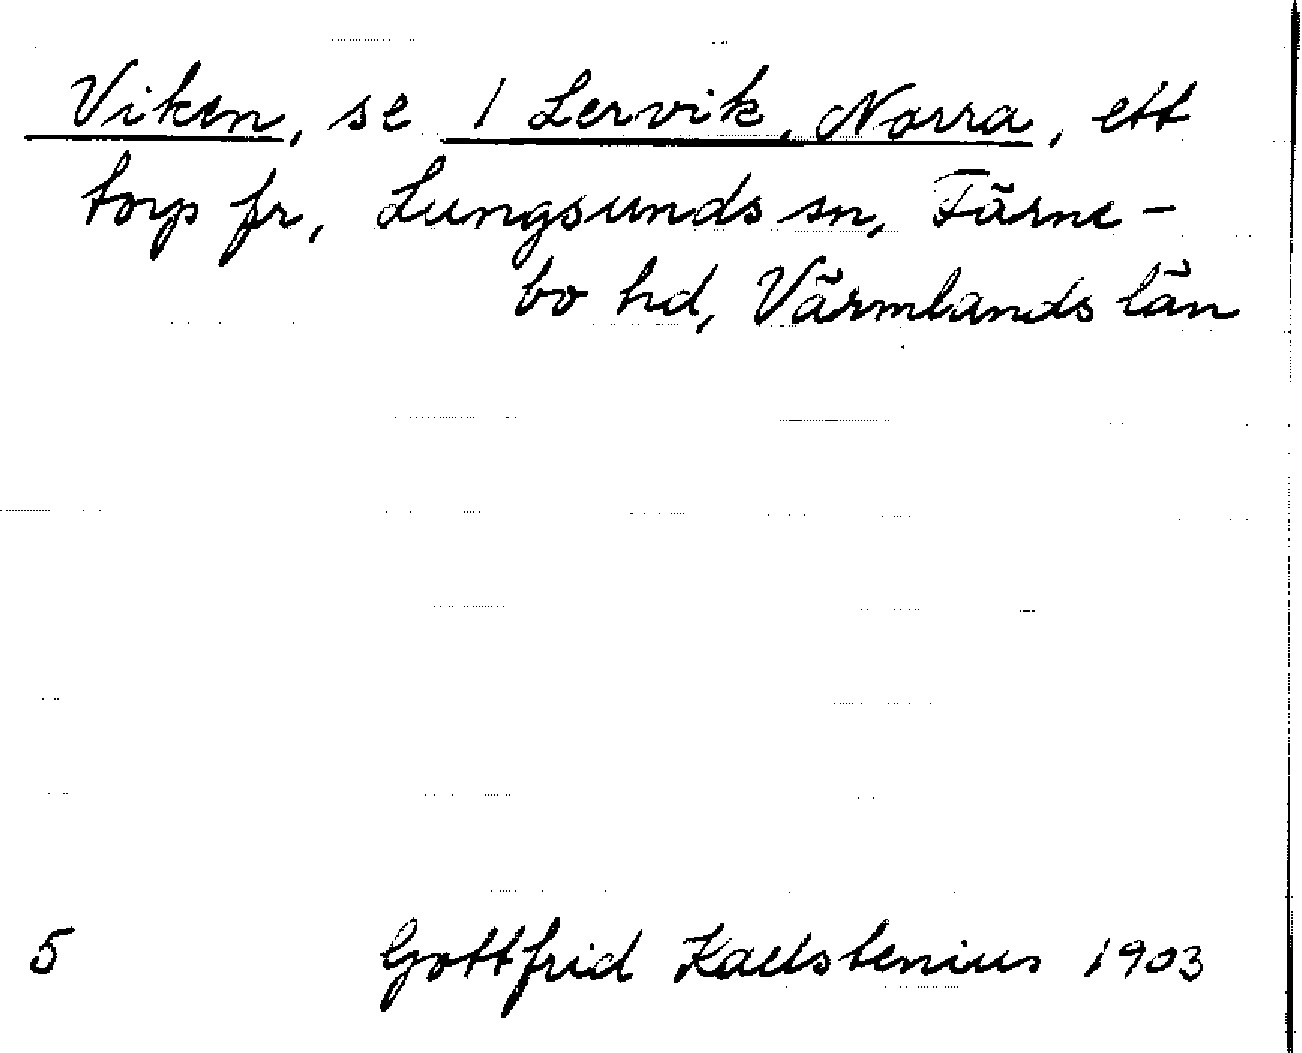 Viken, se 1 Lervik, Norra, ett
torp fr, Lungsunds sn, Färne-
bo hd, Värmlands län
5 Gottfrid Kallstenius 1903